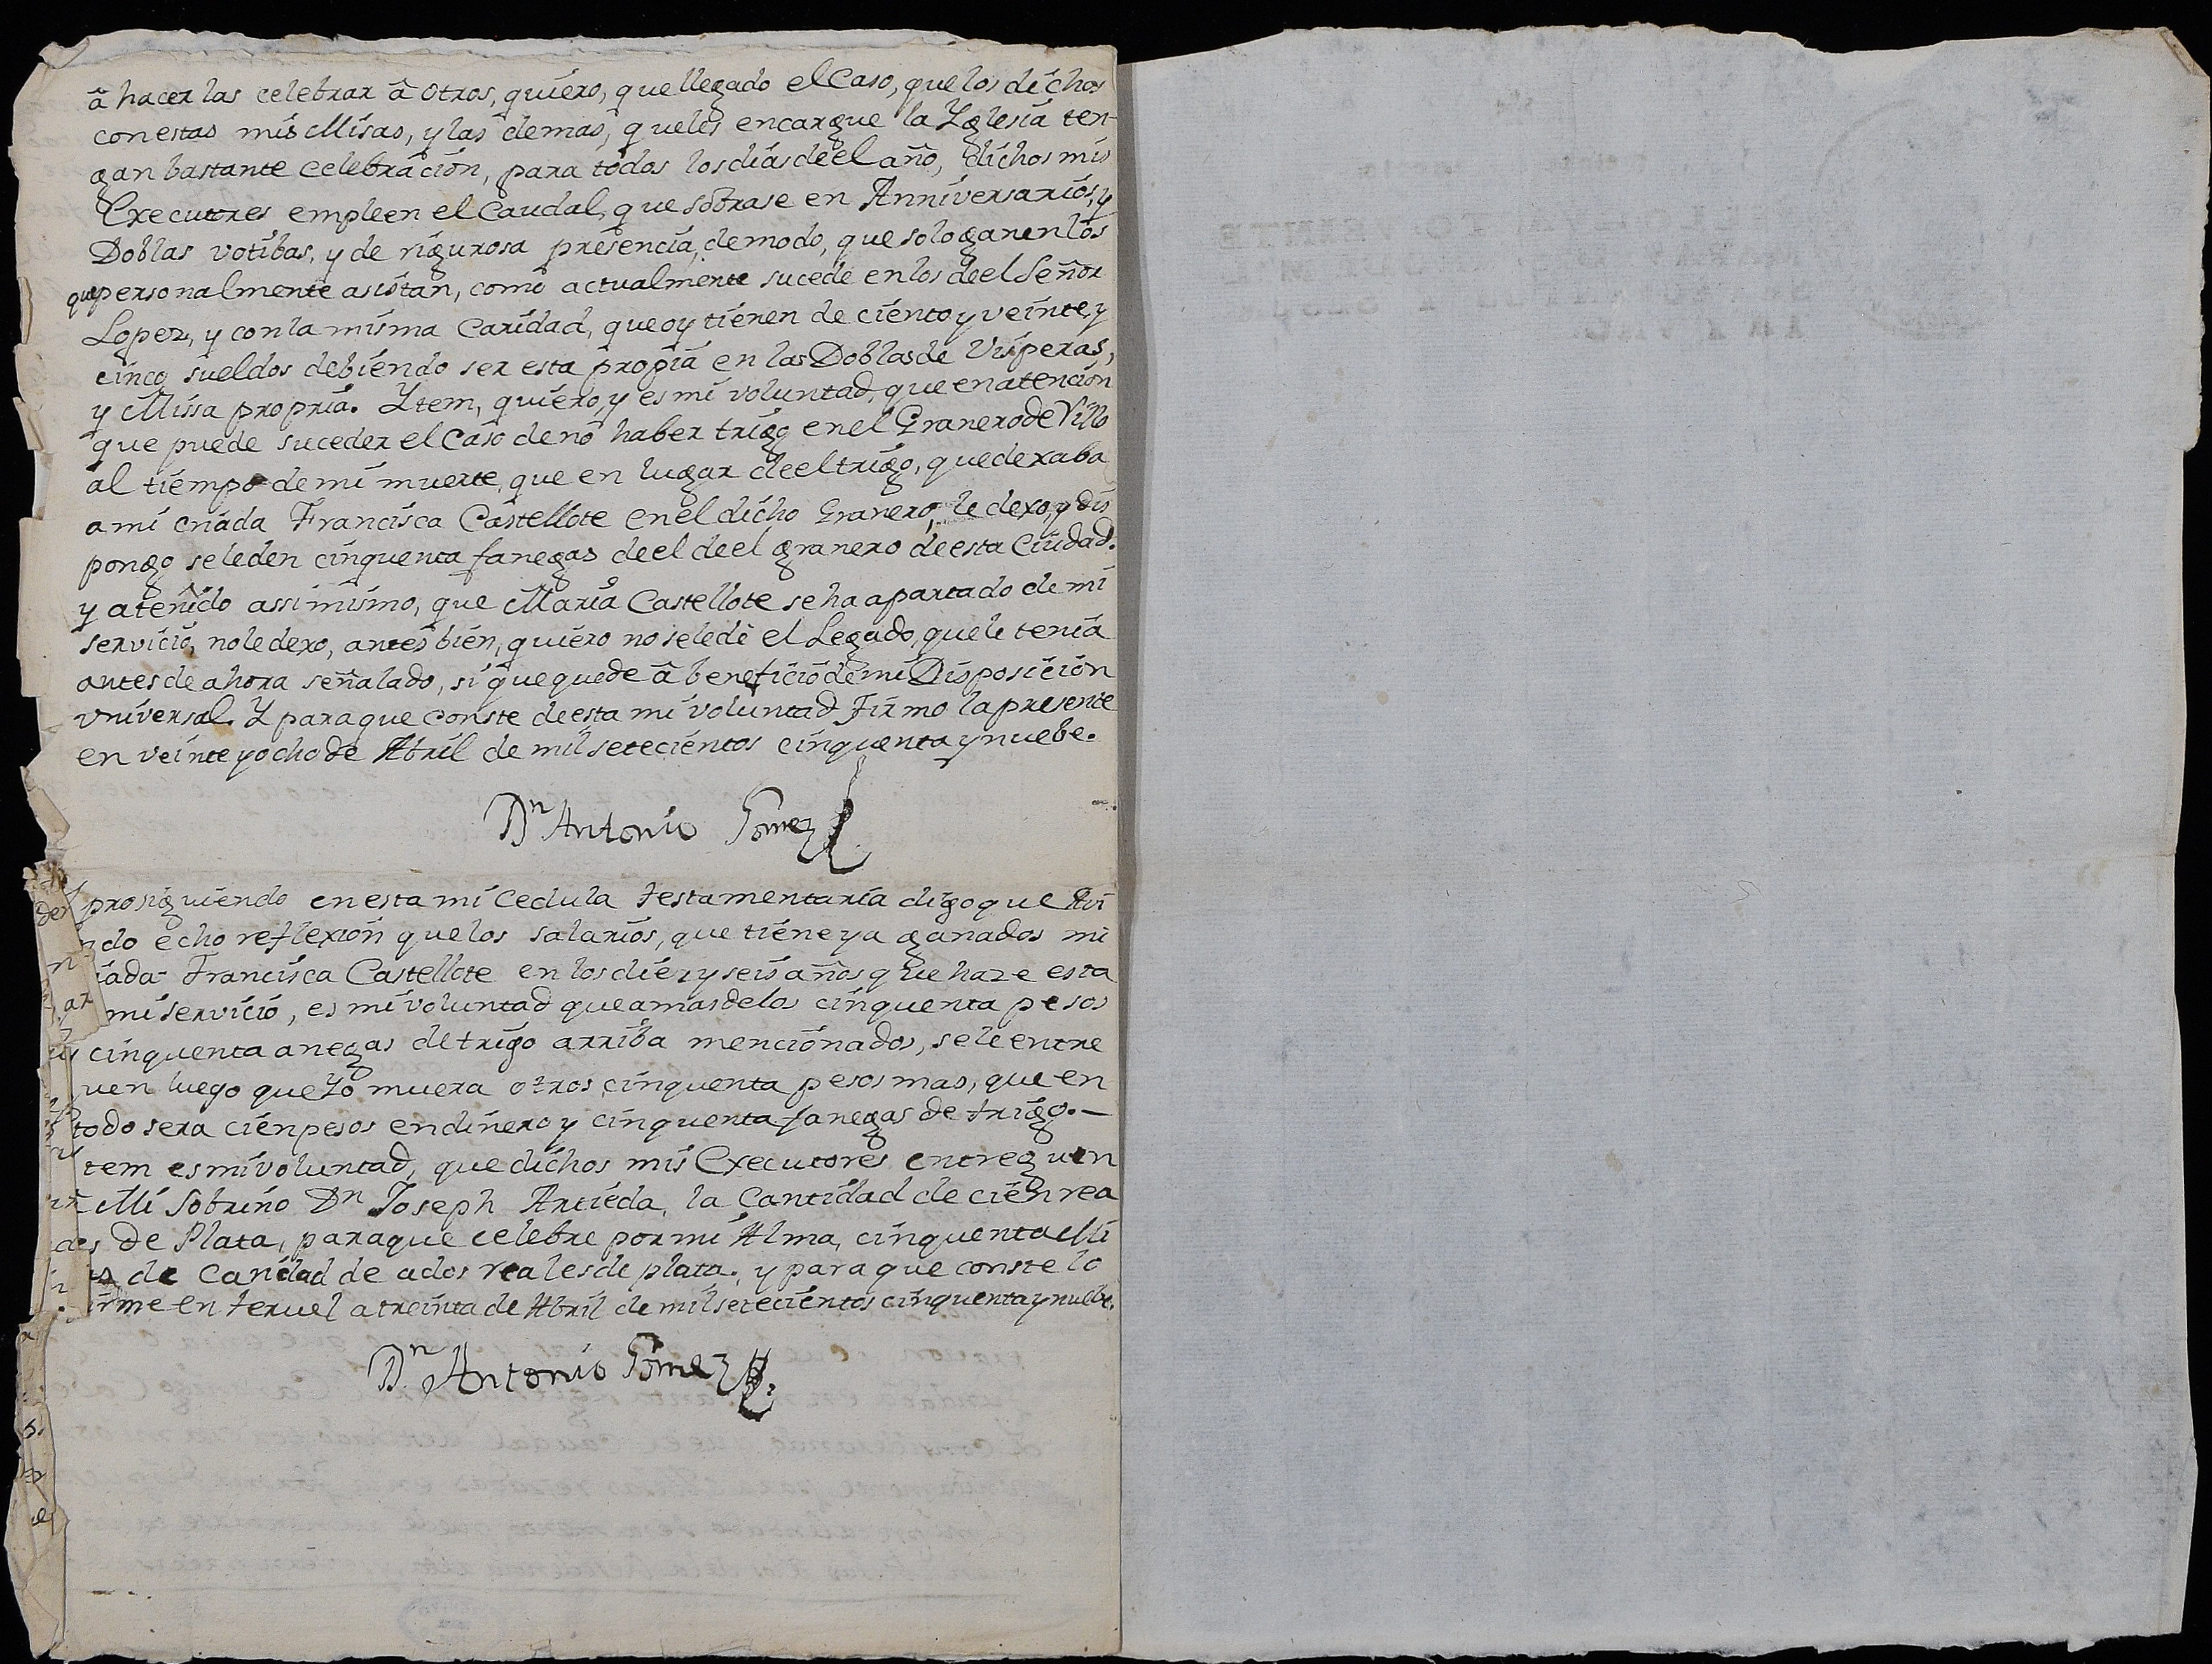 â hacer las celebrar â otros, quiero, que llegado el Caso, que los dichos
con estas mis Misas, y las demas, que les encargue la Yglesia ten-
gan bastante celebracion, para todos los dias de el año, dichos mis
Executores empleen el Caudal, que sobrase en Anniversarios, y
Doblas votibas, y de rigurosa presencia, de modo, que solo ganen los
que personalmente asistan, como actualmente sucede en los de el Señor
Lopez, y con la misma Caridad, que oy tienen de ciento y veinte, y
cinco sueldos debiendo ser esta propia en las Doblas de Visperas,
y Missa propria. Ytem, quiero, y es mi voluntad, que en atencion
que puede suceder el Caso de no haber trigo en el Granero de
al tiempo de mi muerte, que en lugar de el trigo, que dexaba
a mi criada Francisca Castellote en el dicho Granero, le dexo, y dis
pongo se le den cinquenta fanegas de el de el granero de esta Ciudad.
y atenido assi mismo, que Maria Castellote se ha apartado de mi
servicio, no le dexo, antes bien, quiero no se le dè el Legado, que le tenia
antes de ahora señalado, si que quede â beneficio de mi Disposicion
vniversal. Y para que conste de esta mi voluntad Firmo la presente
en veinte y ocho de Abril de mil setecientos cinquenta y nuebe.
Dn Antonio Gomez
prosiguiendo en esta mi Cedula testamentaria digo que Avi
ndo echo reflexion que los salarios, que tiene ya ganados mi
iada Francisca Castellote en los diez y seis años que haze esta
mi servicio, es mi voluntad que a mas de los cinquenta pesos
cinquenta anegas de trigo arriba mencionados, se le entre
uen luego que Yo muera otros cinquenta pesos mas, que en
todo sera cien pesos en dinero y cinquenta fanegas de trigo.—
tem es mi voluntad, que dichos mis Executores entreguen
Mi Sobrino Dn Joseph Artieda, la Cantidad de cien rea
des de Plata, para que celebre por mi Alma, cinquenta Mi
de Caridad de a dos reales de plata. y para que conste lo
irme en teruel a treinta de Abril de mil setecientos cinquenta y nuebe.
Dn Antonio Gomez